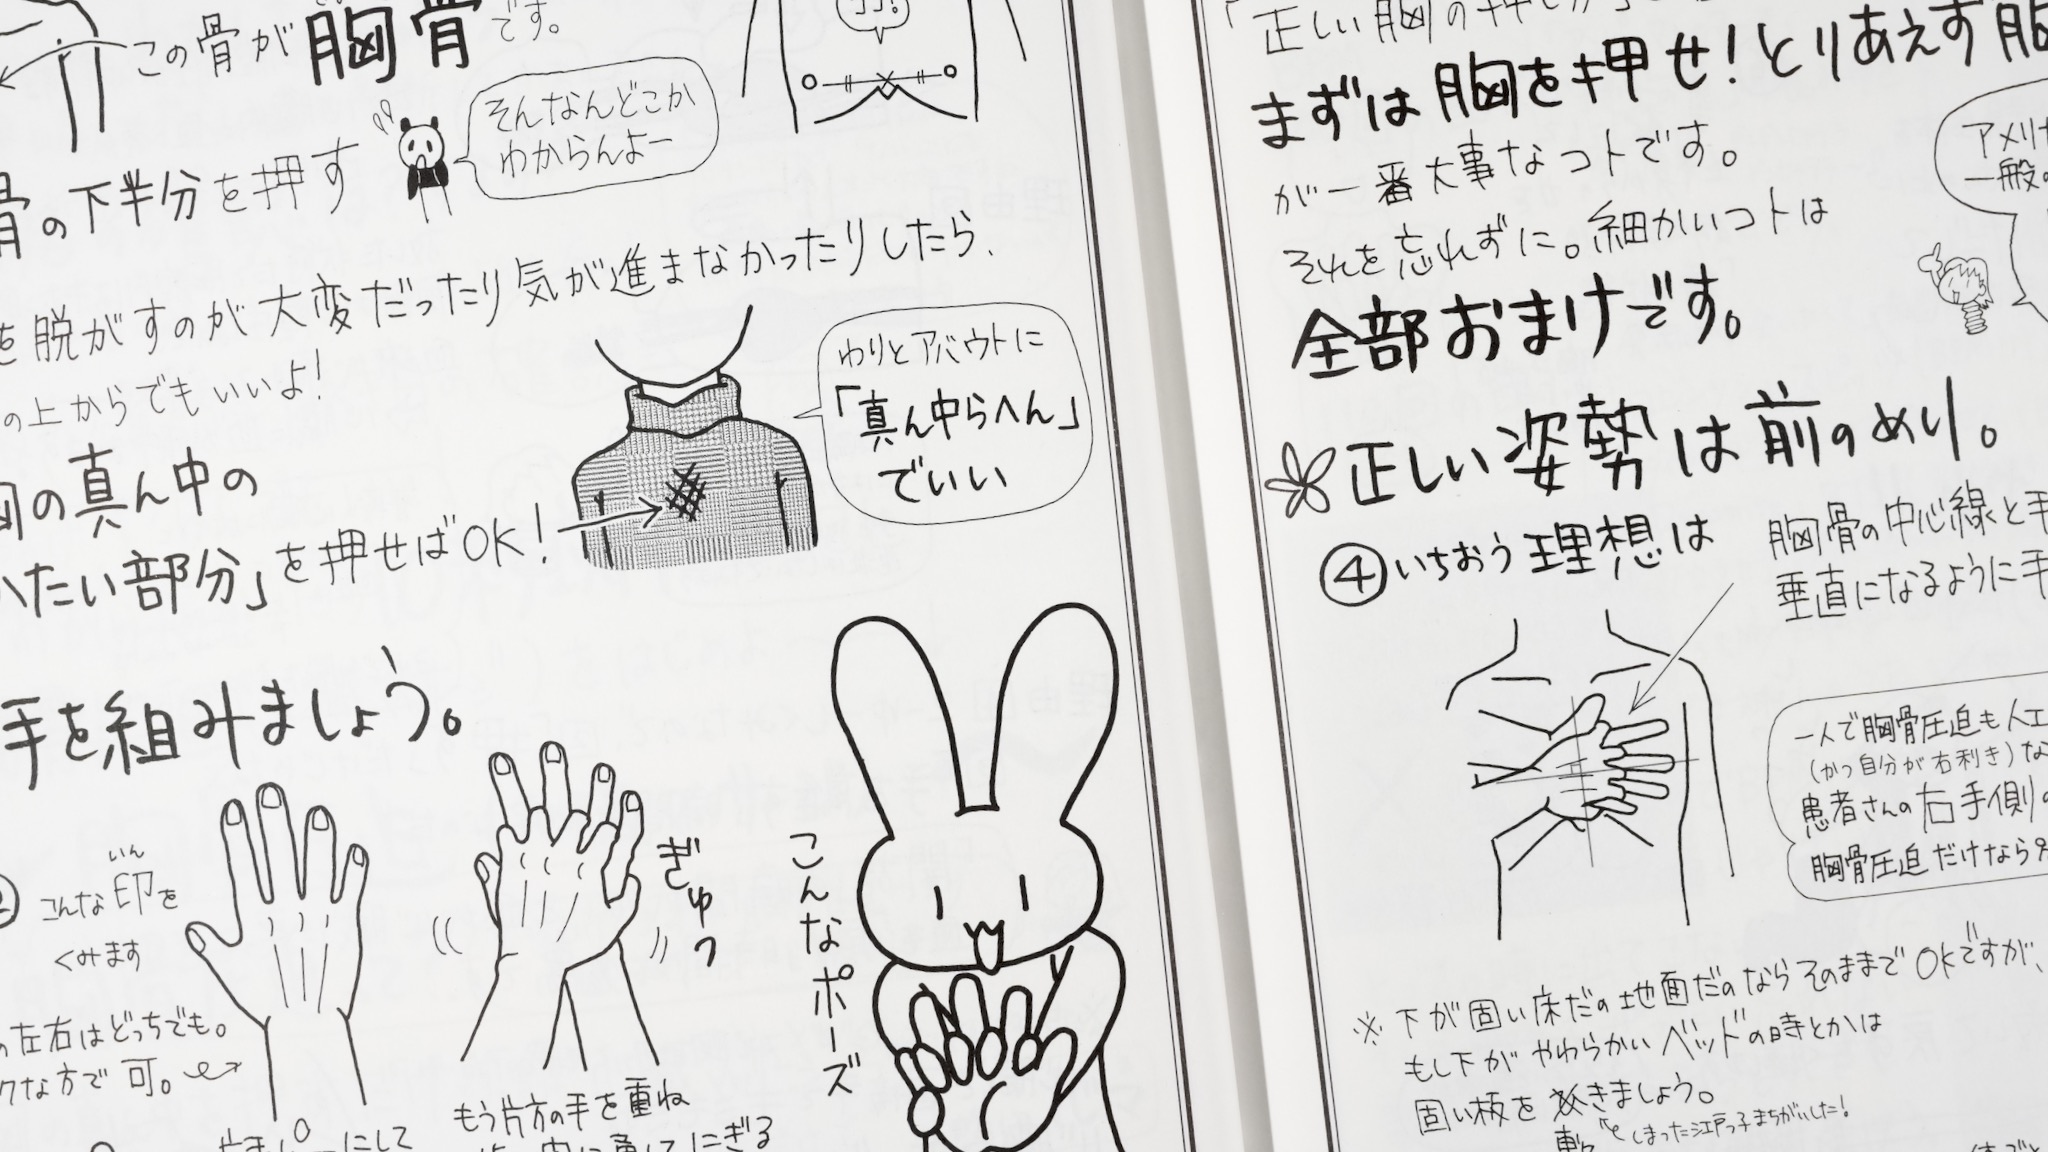 この骨が胸骨です。
そんなんどこか
わからんよー
骨の下半分を押す
を脱がすのが大変だったり気が進まなかったりしたら、
の上からでもいいよ!
わりとアバウトに
「真ん中らへん」
でいい
の真ん中の
たい部分」を押せばOK!
手を組みましょう。
いん
こんな印を
くみます
ぎゅっ
こんなポーズ
の左右はどっちでも。
な方で可。
にして
もう片方の手を重ね
にぎる
「正しい胸の押し方」
まずは胸を押せ!とりあえず胸
が一番大事なコトです。
それを忘れずに。細かいコトは
全部おまけです。
アメリカ
一般の
正しい姿勢は前のめり。
④いちおう理想は
胸骨の中心線と手
垂直になるように手
一人で胸骨圧迫も人工
(かつ自分が右利き)な
患者さんの右手側の
胸骨圧迫だけなら
※下が固い床だの地面だのならそのままでOKですが、
もし下がやわらかいベッドの時とかは
固い板をきましょう。
しまった江戸っ子まちがいした!